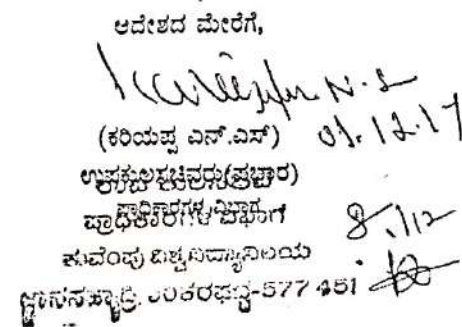 ಆದೇಶದ ಮೇರೆಗೆ,
N.S
(ಕರಿಯಪ್ಪ ಎನ್.ಎಸ್) 01.12.17
ಉಪಕುಲಸಚಿವರು(ಪ್ರಭಾರ)
ಪ್ರಾಧಿಕಾರಗಳ ವಿಭಾಗ
8/12
ಕುವೆಂಪು ವಿಶ್ವವಿದ್ಯಾನಿಲಯ
ಜ್ಞಾನಸಹ್ಯಾದ್ರಿ, ಶಂಕರಘಟ್ಟ-577 451